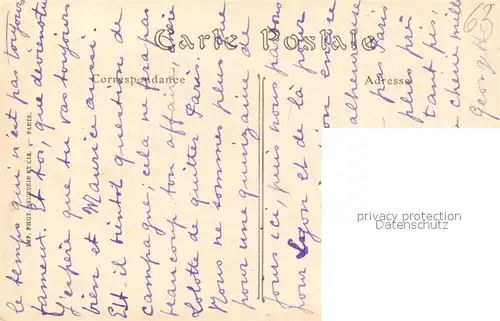 63
Carte Postale
Correspondance
Adresse
IMP. PHOT. NEURDEIN ET CIE. PARIS.
le temps qui n'est pas toujours
tament. Et toi, que deviens-tu
J'espère que tu vas toujours
bien et Maurice aussi.
Est-il bientôt question de
campagne, cela ne fera pas
beaucoup ton affaire,
Lolotte de quitter Paris.
Nous ne sommes plus que
pour une quinzaine de
jours ici, puis nous partons
pour Lyon et de là
encore
alheureuse
pas Paris
plus près
tant pis,
chérie mille
Georgette
privacy protection
watermark